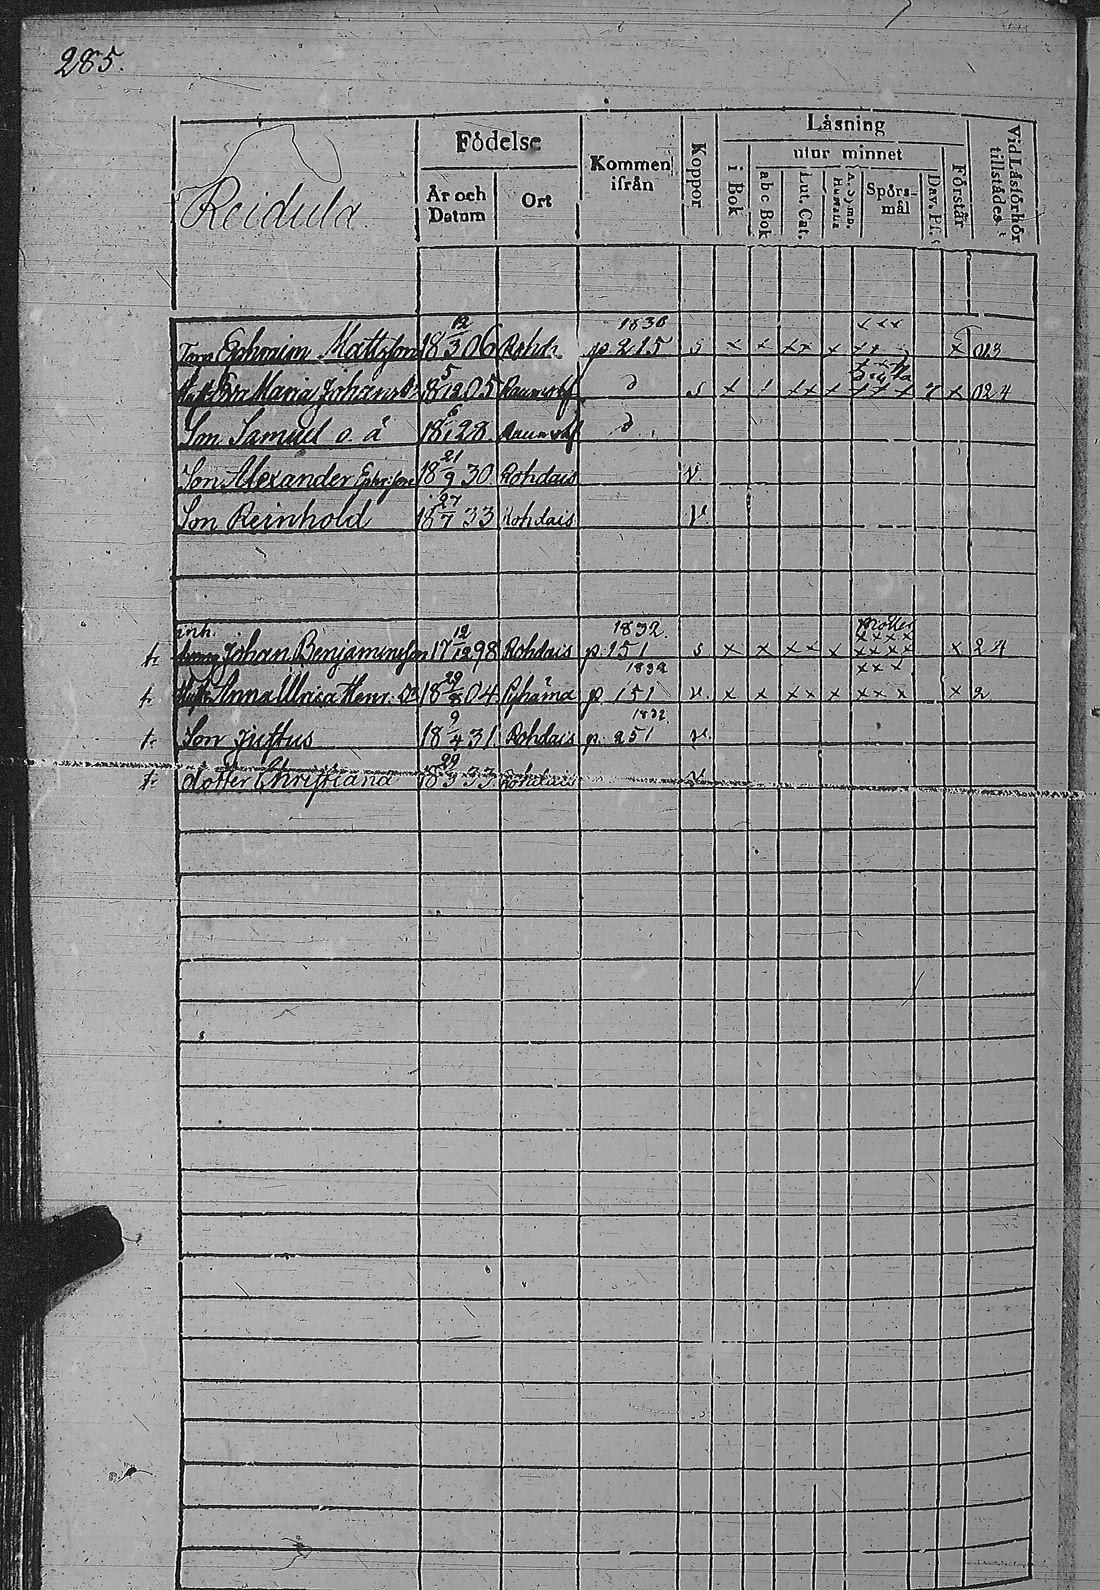 285.
Reidula.
Födelse
År och Datum
Ort
Kommen ifrån
Koppor
Läsning
utur minnet
i Bok
abc Bok
Lut. Cat.
A. Symb. Hustafla
Spörs-mål
Dav. Ps.
Förstår
Vid Läsförhör tillstädes
12 1836 xxx
Torp Ephraim Mattsson 18 3 06 Rohda p 215 s x x xx x xx x 023
5
Hust. Eva Maria Johansdr 18 12 05 Raumo lf d s x / xx x xxx x 024
6
Son Samuel o. ä 18 1 28 Raumo lf d
21
Son Alexander Ephrson 18 9 30 Rohdais v.
27
Son Reinhold 18 7 33 Rohdais v.
inh. 12 1832. xxxx
t. Johan Benjaminsson 17 12 98 Rohdais p. 151 s x x xx x xxxx x 24
29 1832 xxx
t. Hust. Anna Ulrica Henr. Dr 18 8 04 Pyhäma p 151 v. x x xx x xxx x 2
9 1832.
t. Son Justus 18 4 31 Rohdais p. 251 v.
29
t. dotter Christiana 18 3 33 Rohdais v